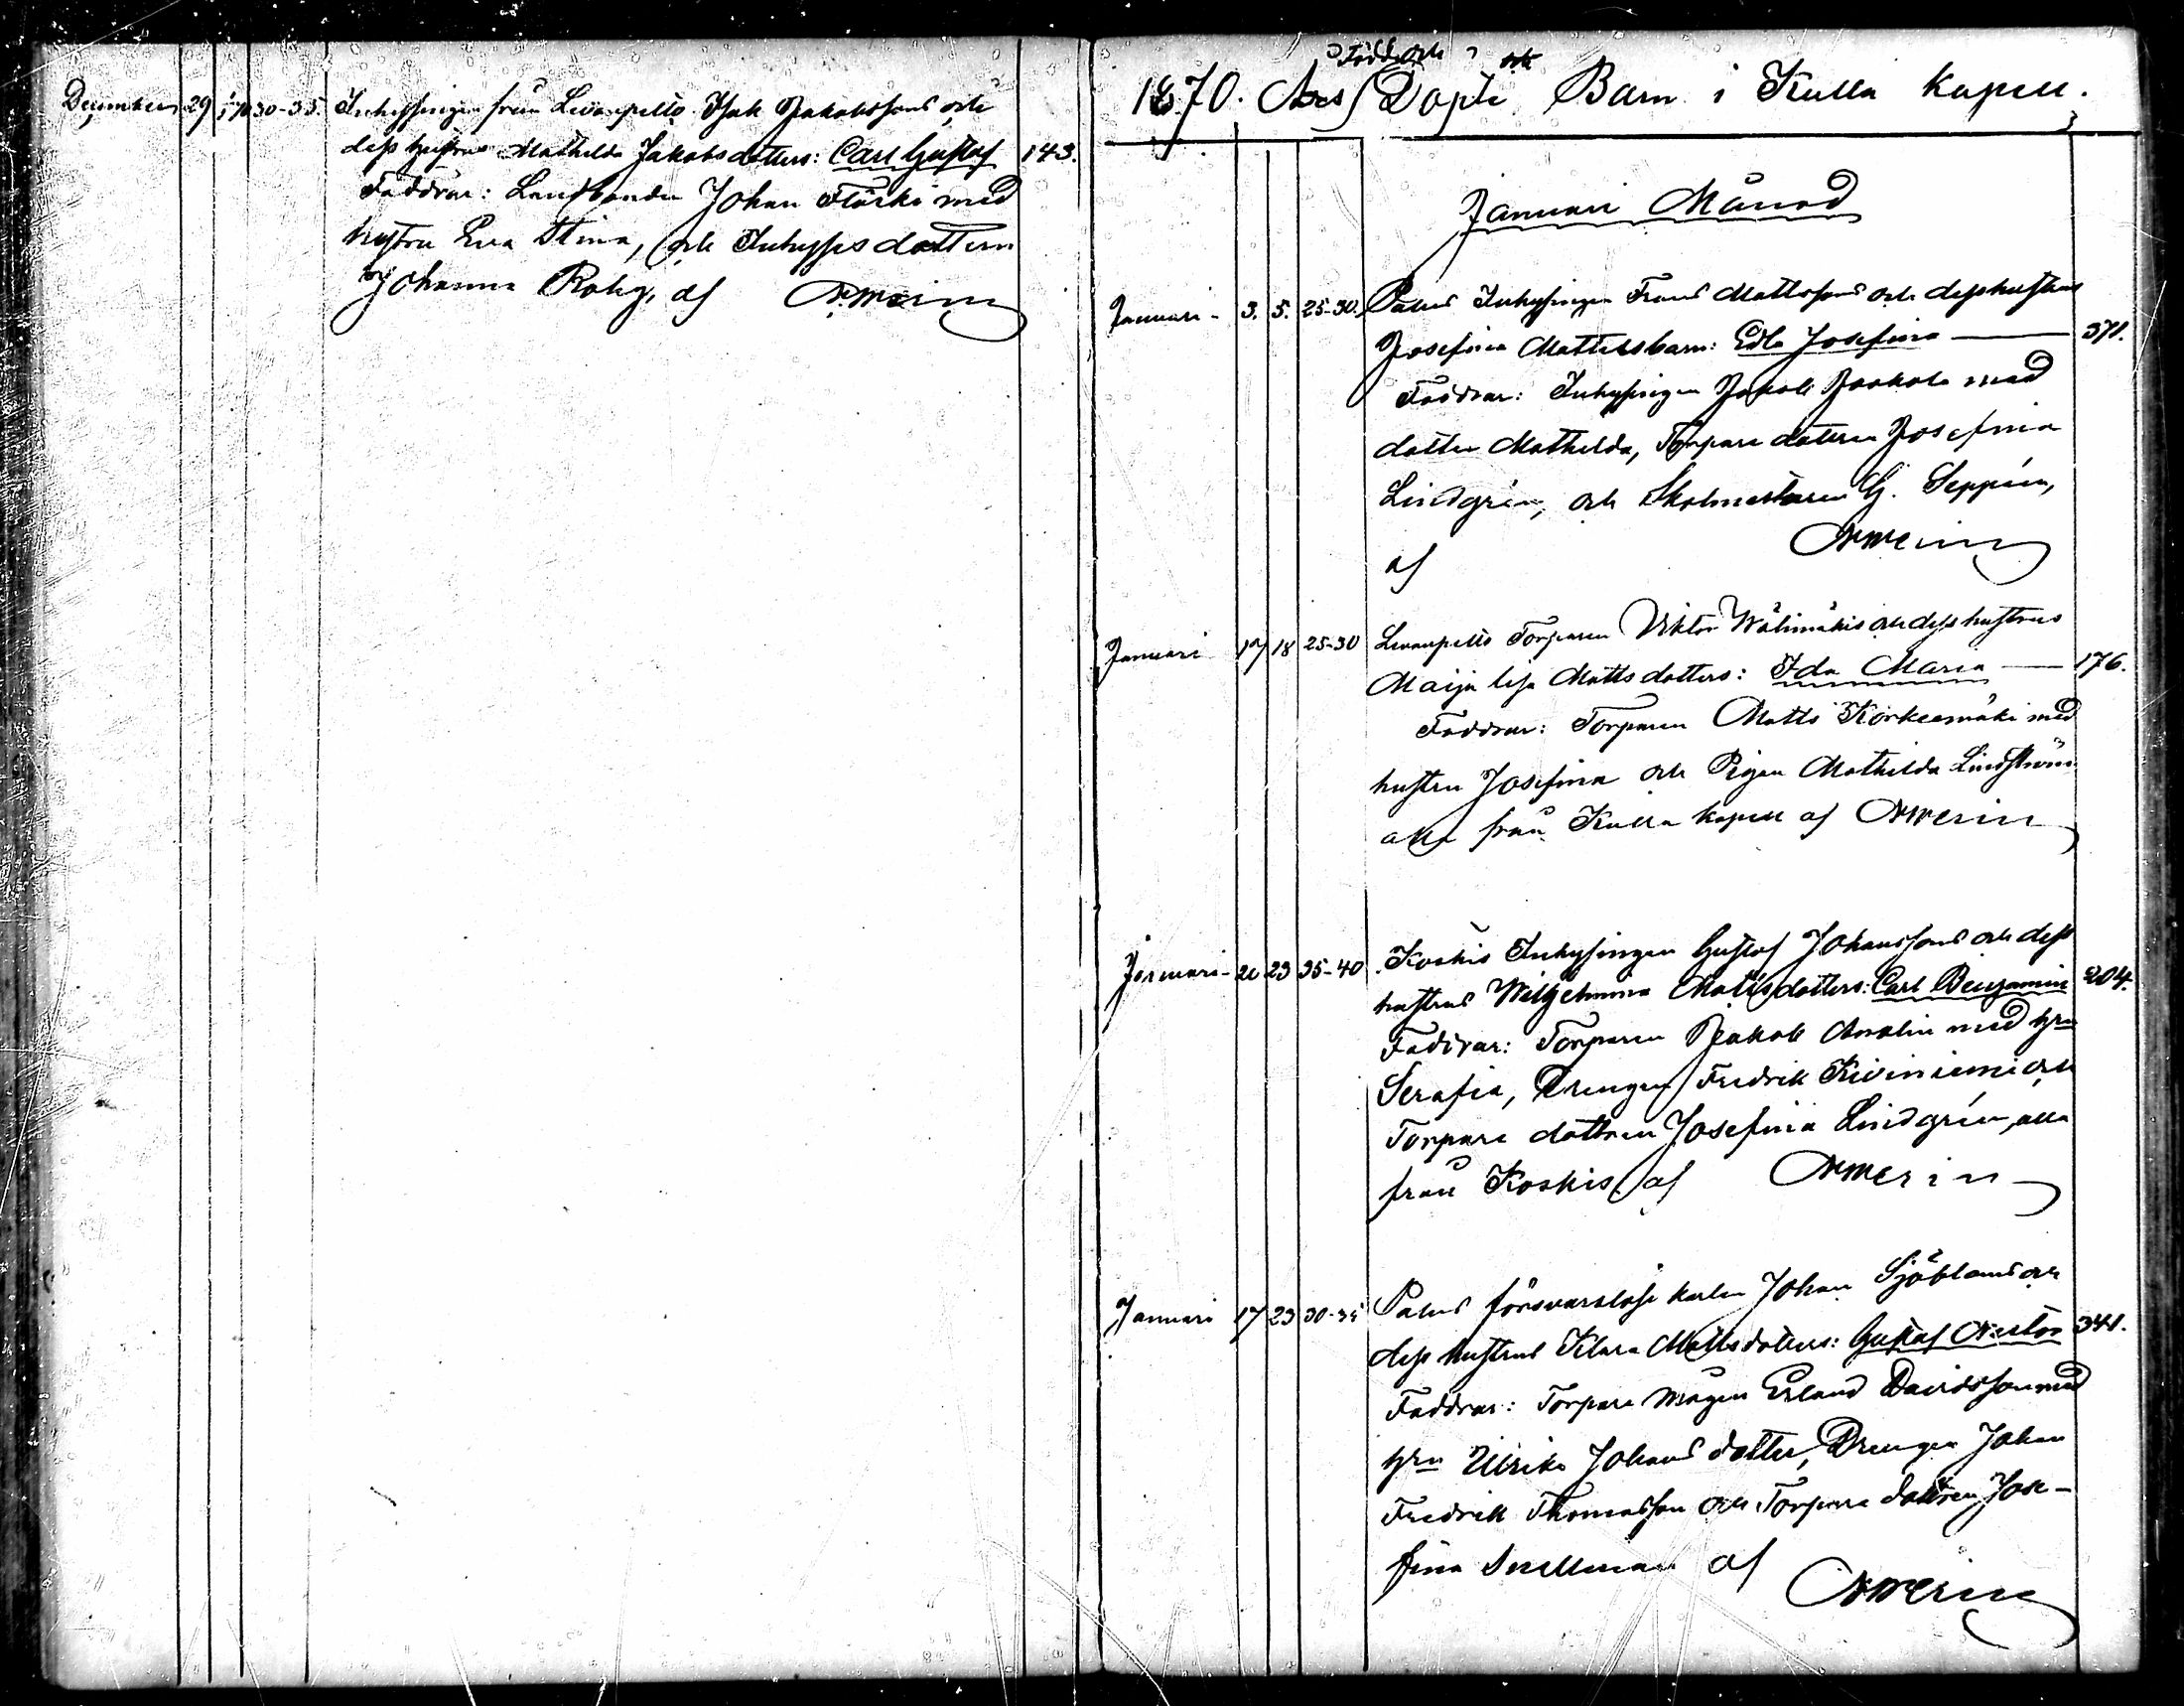 December 29 1/1 70 30-35. Inhysingen från Levanpelto Isak Jakobssons och
dess hustrus Mathilda Jakobsdotters: Carl Gustaf 143.
Faddrar: Landbonden Johan Flärki med
hustru Eva Stina, och Inhysesdottern
Johanna af
1870. Års Födde och Döpte Barn i Kulla Kapell.
Januari Månad
Januari - 3. 5. 25-30. Palus Inhysingen Frans Mattssons och dess hustrus
Josefina Mattssbarn: Edla Josefina 371.
Faddrar: Inhysingen Jakob Jaakola med
dotter Mathilda, Torpare dottren Josefina
Lindgrén, och Skolmästaren G. Seppén,
af
Januari 17 18 25-30 Levanpelto Torparen Viktor Wälimäkis och dess hustrus
Maija Lisa Matts dotters: Ida Maria 176.
Faddrar: Torparen Matts Korkeemäki med
hustru Josefina och Pigan Mathilda Lindström
alla från Kulla kapell af
Januari - 20 23 35-40 Koskis Inhysingen Gustaf Johanssons och dess
hustrus Wilhelmina Mattsdotters: Carl Benjamin 204.
Faddrar: Torparen Jakob med hru
Serafia, Drengen Fredrik Kiviniemi och
Torpare dottren Josefina Lindgrén, alla
från Koskis, af
Januari 17 23 30-35 Palus försvarslöse karlen Johan Sjöbloms och
dess hustrus Klara Mattsdotters: Gustaf Nestor 341.
Faddrar: Torpare mågen Erland Davidsson med
hru Ulrika Johans dotter, Drengen Johan
Fredrik Thomasson och Torpare dottren Jose-
fina Snellman af